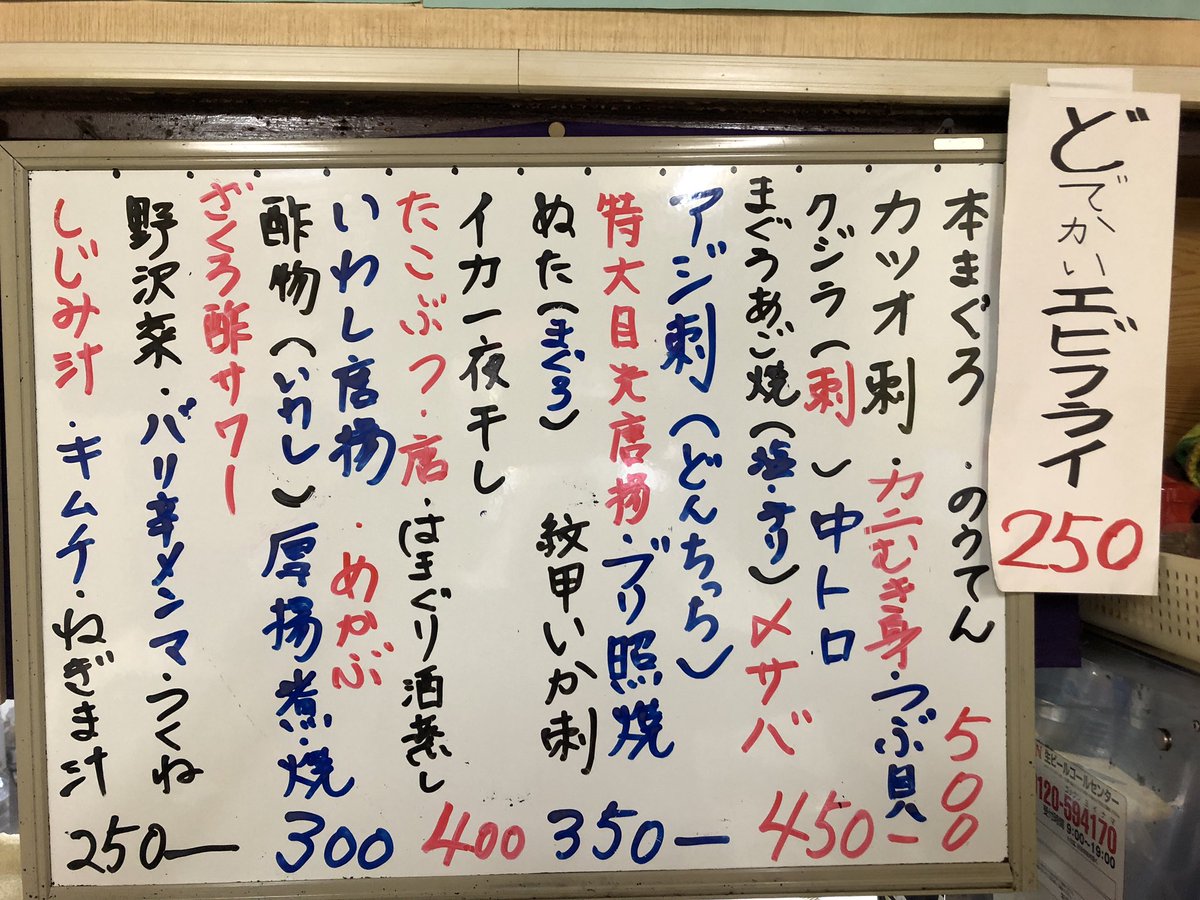 どでかいエビフライ
250
本まぐろ ・のうてん 500
カツオ刺・カニむき身・つぶ貝
クジラ(刺)中トロ
まぐろあご焼(塩・テリ)〆サバ
450ー
アジ刺(どんちっち)
特大目光唐揚・ブリ照焼
ぬた(まぐろ) 紋甲いか刺
350ー
イカ一夜干し
たこぶつ・唐・はまぐり酒蒸し
400
いわし唐揚・めかぶ
酢物(いわし)厚揚煮・焼
300
ざくろ酢サワー
野沢菜・バリ辛メンマ・つくね
しじみ汁・キムチ・ねぎま汁
250ー
生ビールコールセンター
0120-594170
9:00〜19:00